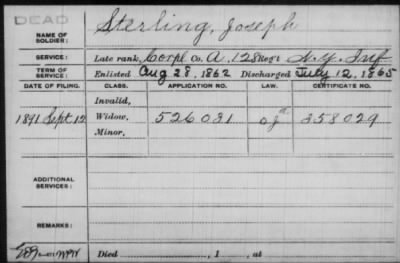 DEAD
NAME OF SOLDIER: Sterling, Joseph
SERVICE: Late rank, Corpl Co. A, 128 Reg't N.Y. Inf
TERM OF SERVICE: Enlisted Aug 28, 1862 Discharged July 12, 1865
DATE OF FILING. CLASS. APPLICATION NO. LAW. CERTIFICATE NO.
Invalid,
1891 Sept. 12 Widow, 526031 358029
Minor,
ADDITIONAL SERVICES:
REMARKS:
Died , 1 , at